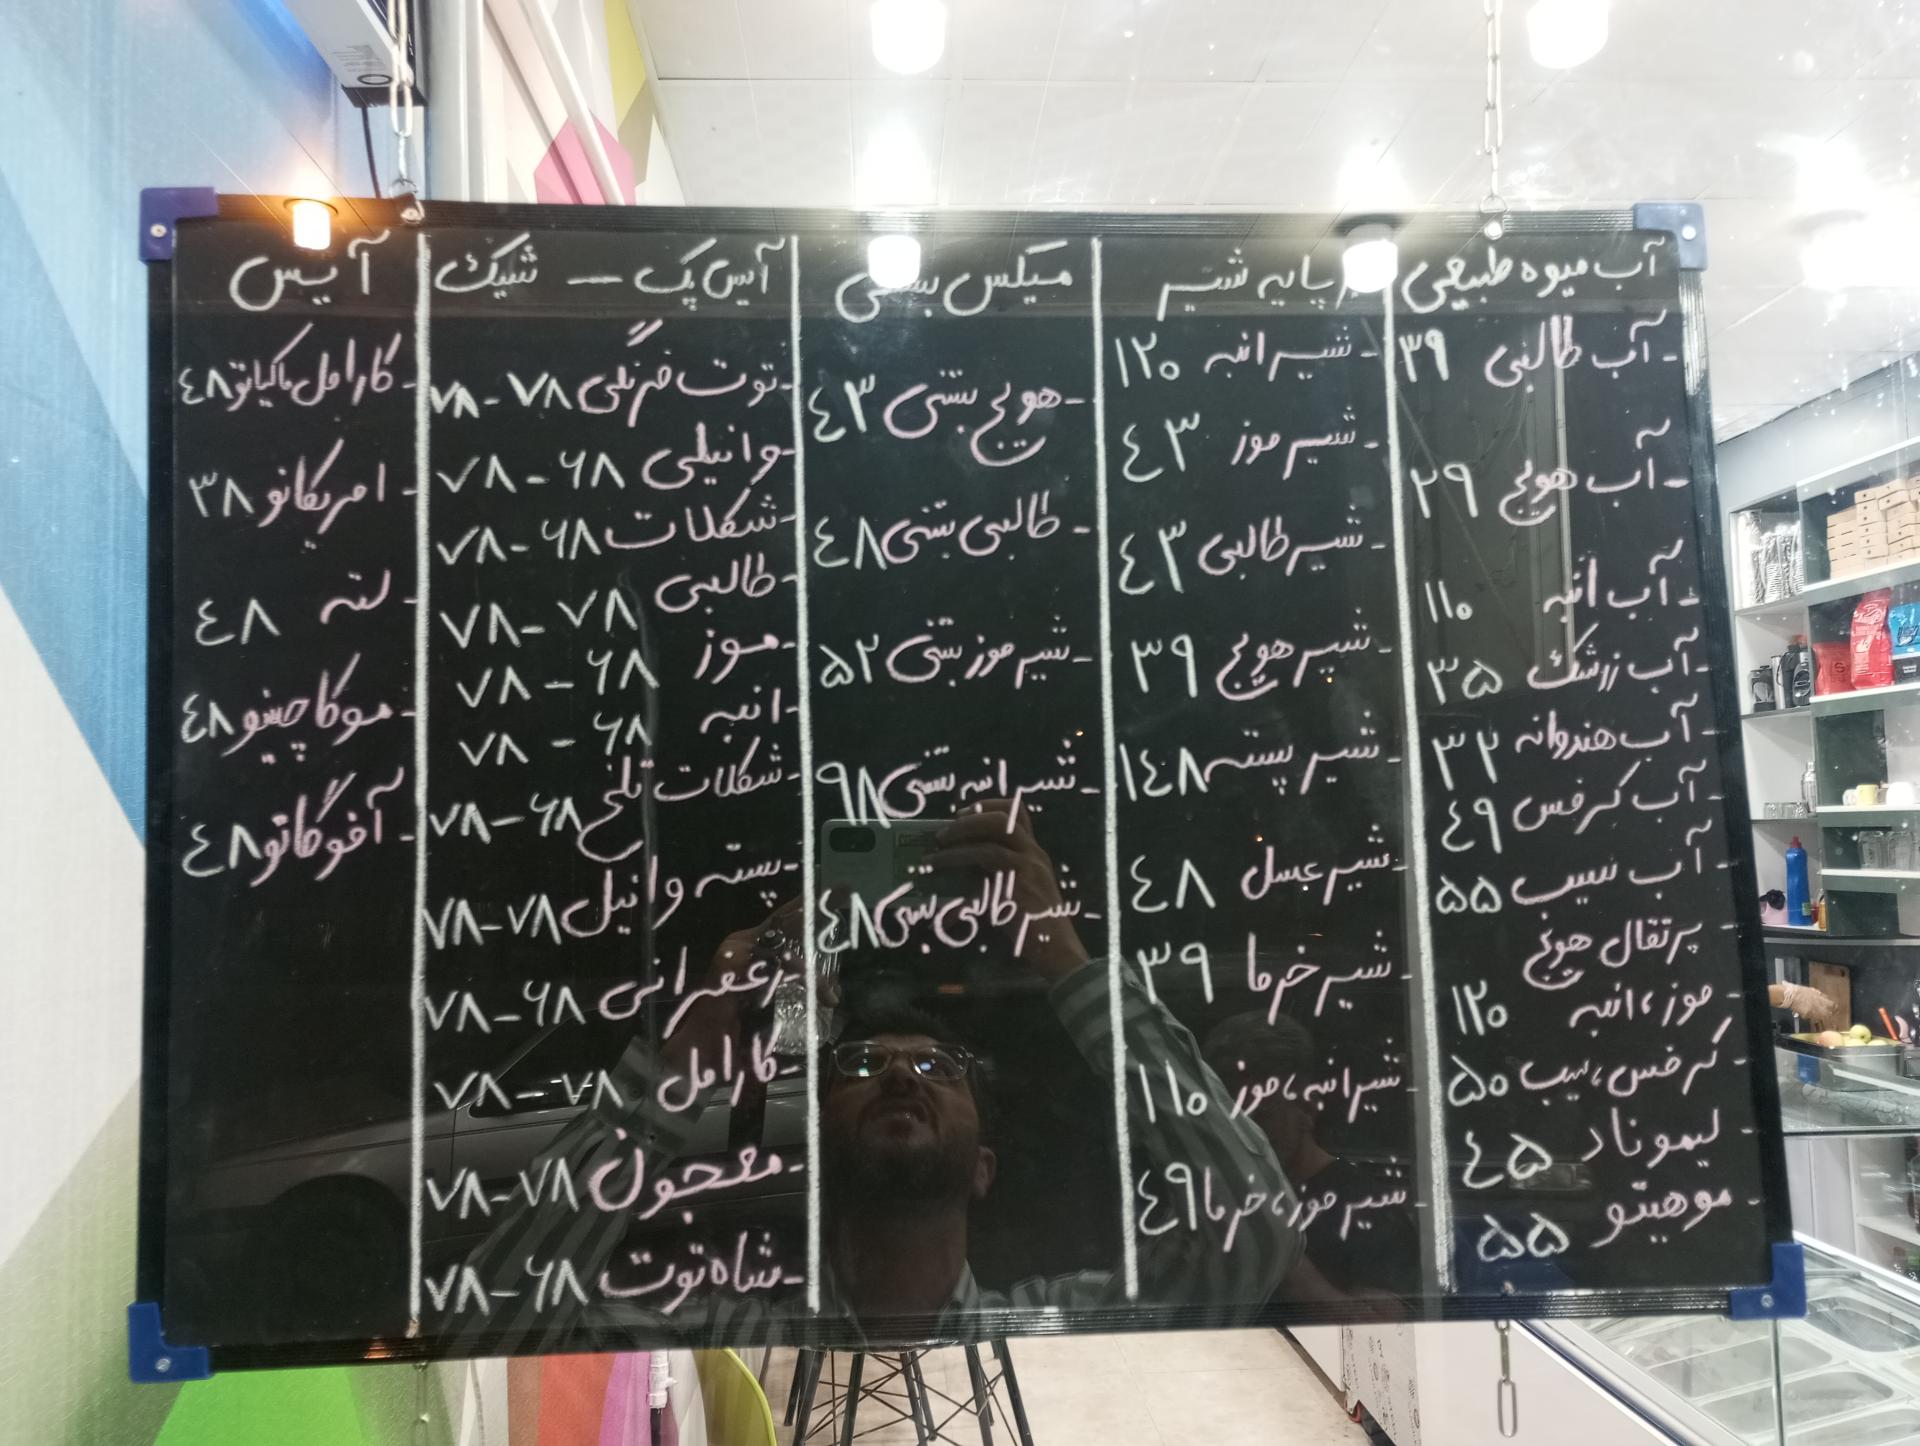 آب میوه طبیعی
- آب طالبی ۳۹
- آب هویج ۲۹
- آب انبه ۱۱۰
- آب زرشک ۳۵
- آب هندوانه ۳۲
- آب کرفس ٤۹
- آب سیب ۵۵
- پرتقال هویج
- موز، انبه ۱۲۰
- کرفس، سیب ۵۰
- لیموناد ٤۵
- موهیتو ۵۵
پایه شیر
- شیر انبه ۱۲۰
- شیر موز ٤۳
- شیر طالبی ٤۳
- شیر هویج ۳۹
- شیر پسته ۱٤۸
- شیر عسل ٤۸
- شیر خرما ۳۹
- شیر انبه، موز ۱۱۰
- شیر موز، خرما ٤۹
میکس بستنی
- هویج بستنی ٤۳
- طالبی بستنی ٤۸
- شیر موز بستنی ۵۲
- شیر انبه بستنی ۹۸
- شیر طالبی بستنی ٤۸
آیس پک — شیک
- توت فرنگی ۷۸ - ۷۸
- وانیلی ۶۸ - ۷۸
- شکلات ۶۸ - ۷۸
- طالبی ۷۸ - ۷۸
- موز ۶۸ - ۷۸
- انبه ۶۸ - ۷۸
- شکلات تلخ ۶۸ - ۷۸
- پسته وانیل ۷۸ - ۷۸
- زعفرانی ۶۸ - ۷۸
- کارامل ۷۸ - ۷۸
- معجون ۷۸ - ۷۸
- شاه توت ۶۸ - ۷۸
آیس
- کارامل ماکیاتو ٤۸
- امریکانو ۳۸
- لته ٤۸
- موکاچینو ٤۸
- آفوگاتو ٤۸